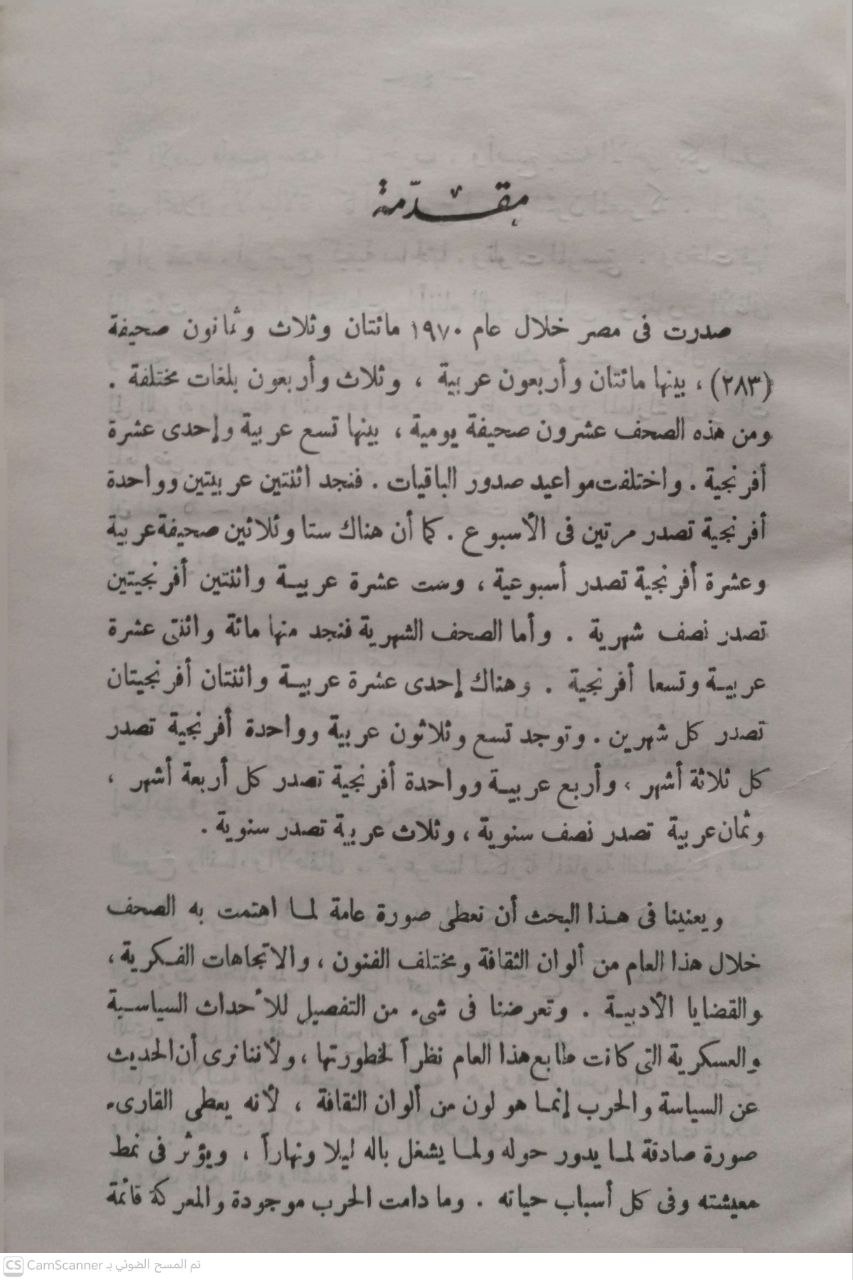 مقدّمة
صدرت فى مصر خلال عام ١٩٧٠ مائتان وثلاث وثمانون صحيفة
(٢٨٣) ، بينها مائتان وأربعون عربية ، وثلاث وأربعون بلغات مختلفة .
ومن هذه الصحف عشرون صحيفة يومية ، بينها تسع عربية وإحدى عشرة
أفرنجية . واختلفت مواعيد صدور الباقيات . فنجد اثنتين عربيتين وواحدة
أفرنجية تصدر مرتين فى الأسبوع . كما أن هناك ستا وثلاثين صحيفة عربية
وعشرة أفرنجية تصدر أسبوعية ، وست عشرة عربيـة واثنتين أفرنجيتين
تصدر نصف شهرية . وأما الصحف الشهرية فنجد منها مائة واثنتى عشرة
عربيـة وتسعا أفرنجية . وهناك إحدى عشرة عربيـة واثنتان أفرنجيتان
تصدر كل شهرين . وتوجد تسع وثلاثون عربية وواحدة أفرنجية تصدر
كل ثلاثة أشهر ، وأربع عربيـة وواحدة أفرنجية تصدر كل أربعة أشهر ،
وثمان عربية تصدر نصف سنوية ، وثلاث عربية تصدر سنوية .
ويعنينا فى هـذا البحث أن نعطى صورة عامة لمـا اهتمت به الصحف
خلال هذا العام من ألوان الثقافة ومختلف الفنون ، والاتجاهات الفـكرية ،
والقضايا الأدبيـة . وتعرضنا فى شىء من التفصيل للأحداث السياسـية
والعسكرية التى كانت طابع هذا العام نظراً لخطورتها ، ولأننا نرى أن الحديث
عن السياسة والحرب إنمـا هو لون من ألوان الثقافة ، لأنه يعطى القارىء
صورة صادقة لمـا يدور حوله ولمـا يشغل باله ليلا ونهاراً ، ويؤثر فى نمط
معيشته وفى كل أسباب حياته . وما دامت الحرب موجودة والمعركة قائمة
CS CamScanner تم المسح الضوئي بـ